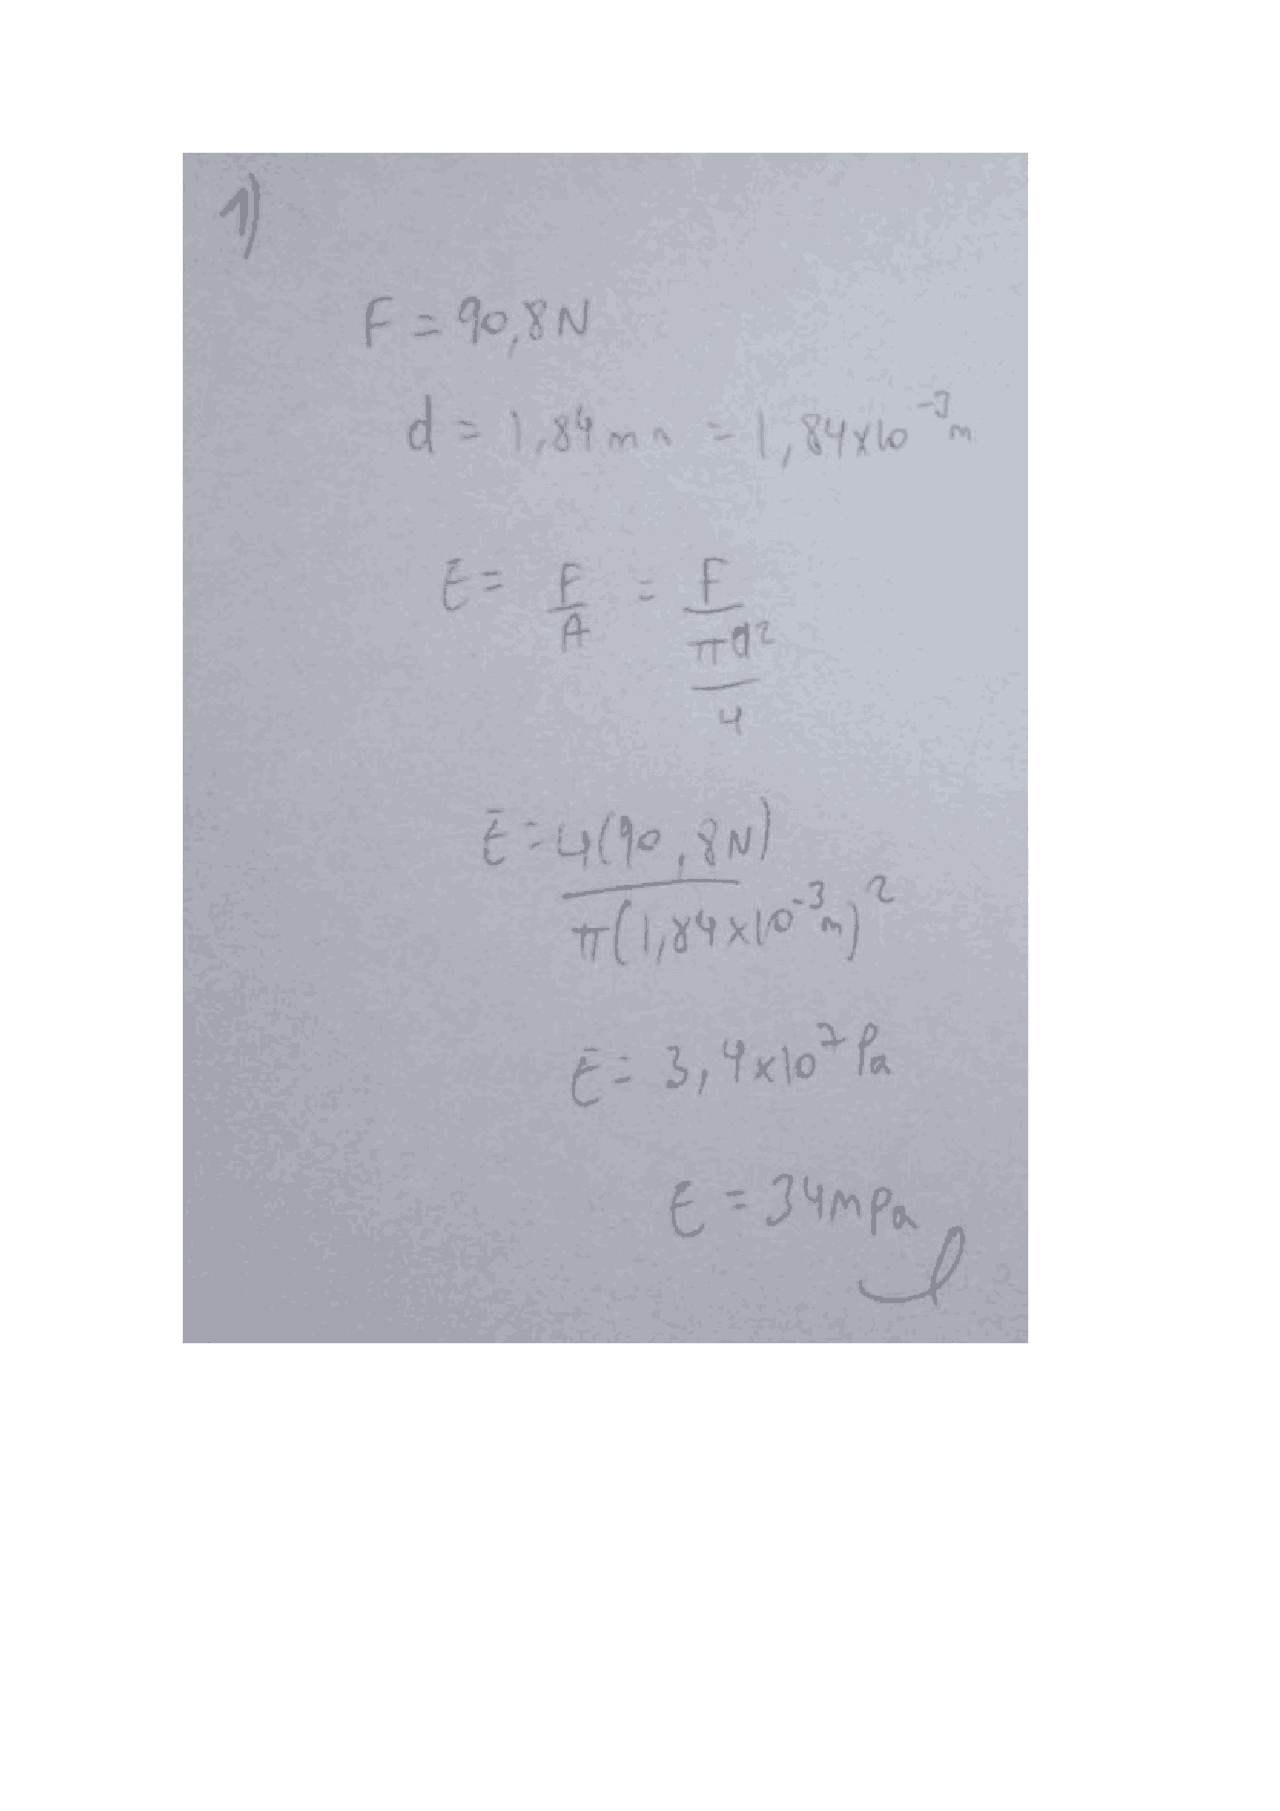 1)
F = 90,8N
d = 1,84mm = 1,84x10⁻³m
E = F/A = F/(πd²/4)
E = 4(90,8N)/π(1,84x10⁻³m)²
E = 3,4x10⁷Pa
E = 34mPa